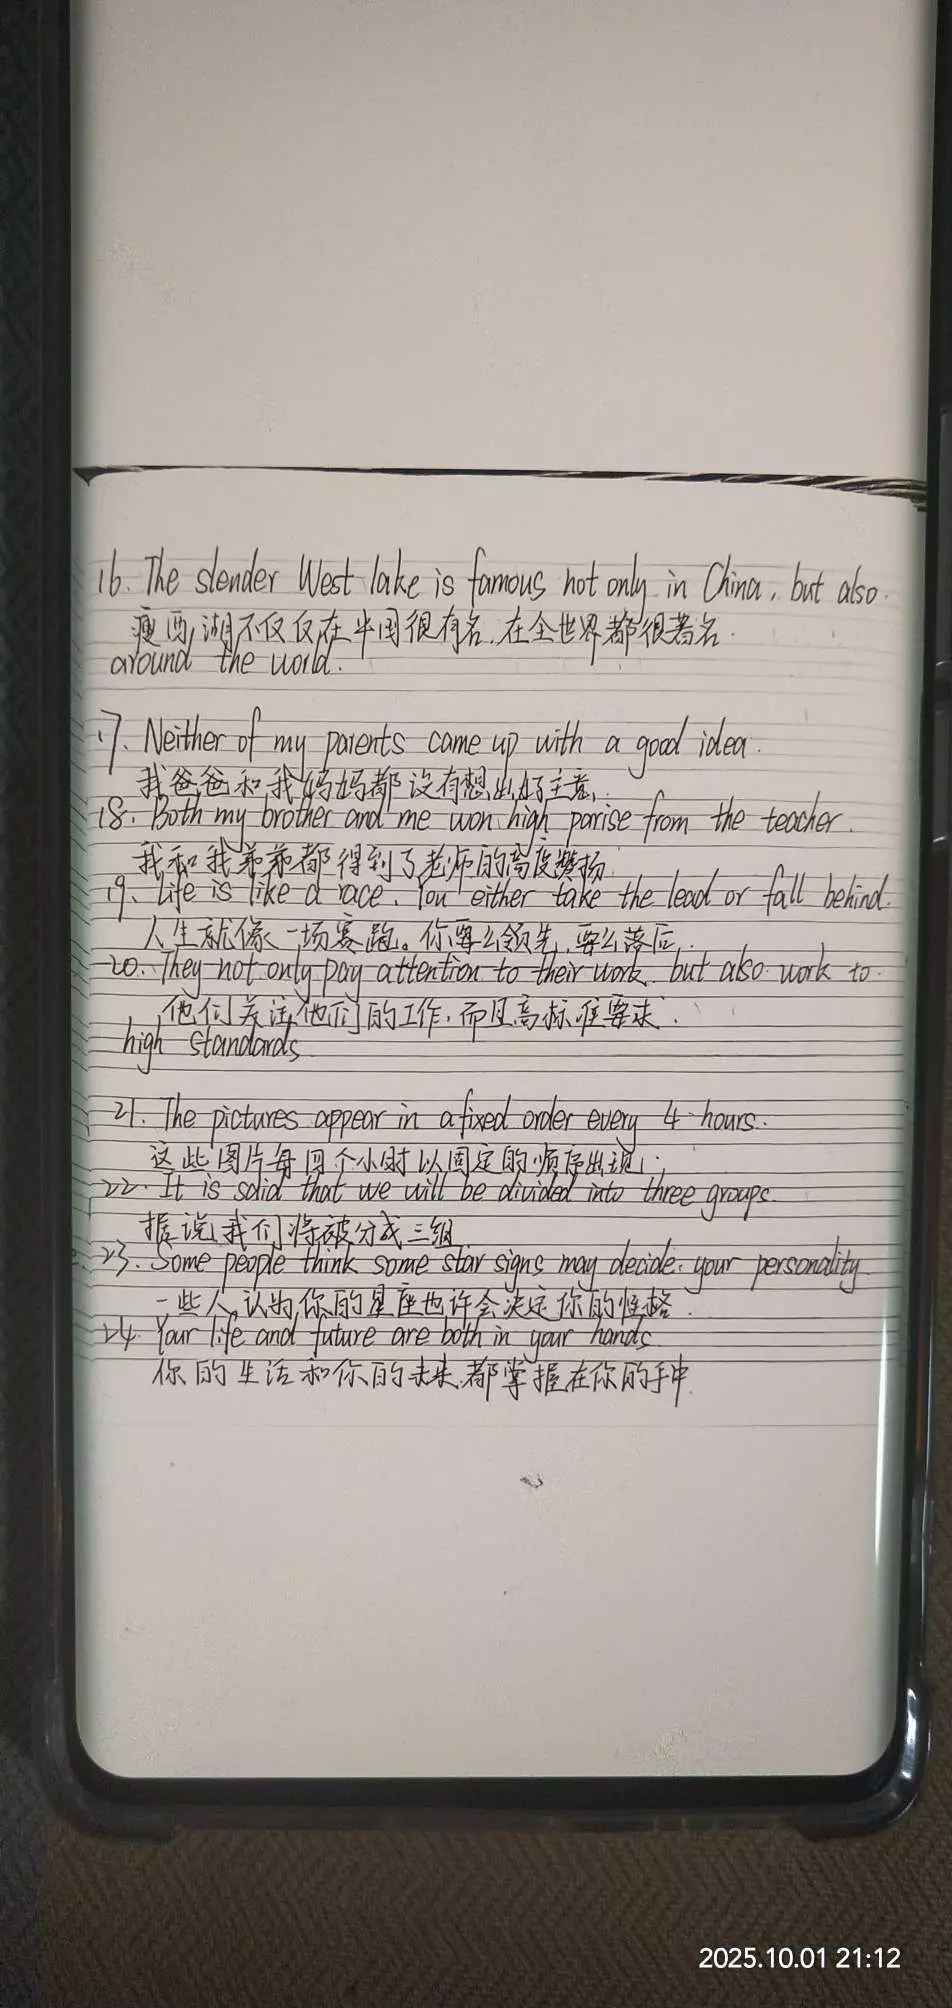 16. The slender West lake is famous not only in China, but also
瘦西湖不仅仅在中国很有名,在全世界都很著名.
around the world.
17. Neither of my parents came up with a good idea.
我爸爸和我妈妈都没有想出好主意.
18. Both my brother and me won high parise from the teacher.
我和我弟弟都得到了老师的高度赞扬
19. Life is like a race. You either take the lead or fall behind.
人生就像一场赛跑。你要么领先,要么落后.
20. They not only pay attention to their work, but also work to
他们关注他们的工作,而且高标准要求.
high standards
21. The pictures appear in a fixed order every 4 hours.
这些图片每四个小时以固定的顺序出现.
22. It is said that we will be divided into three groups.
据说我们将被分成三组
23. Some people think some star signs may decide your personality
一些人认为你的星座也许会决定你的性格.
24. Your life and future are both in your hands.
你的生活和你的未来都掌握在你的手中
2025.10.01 21:12